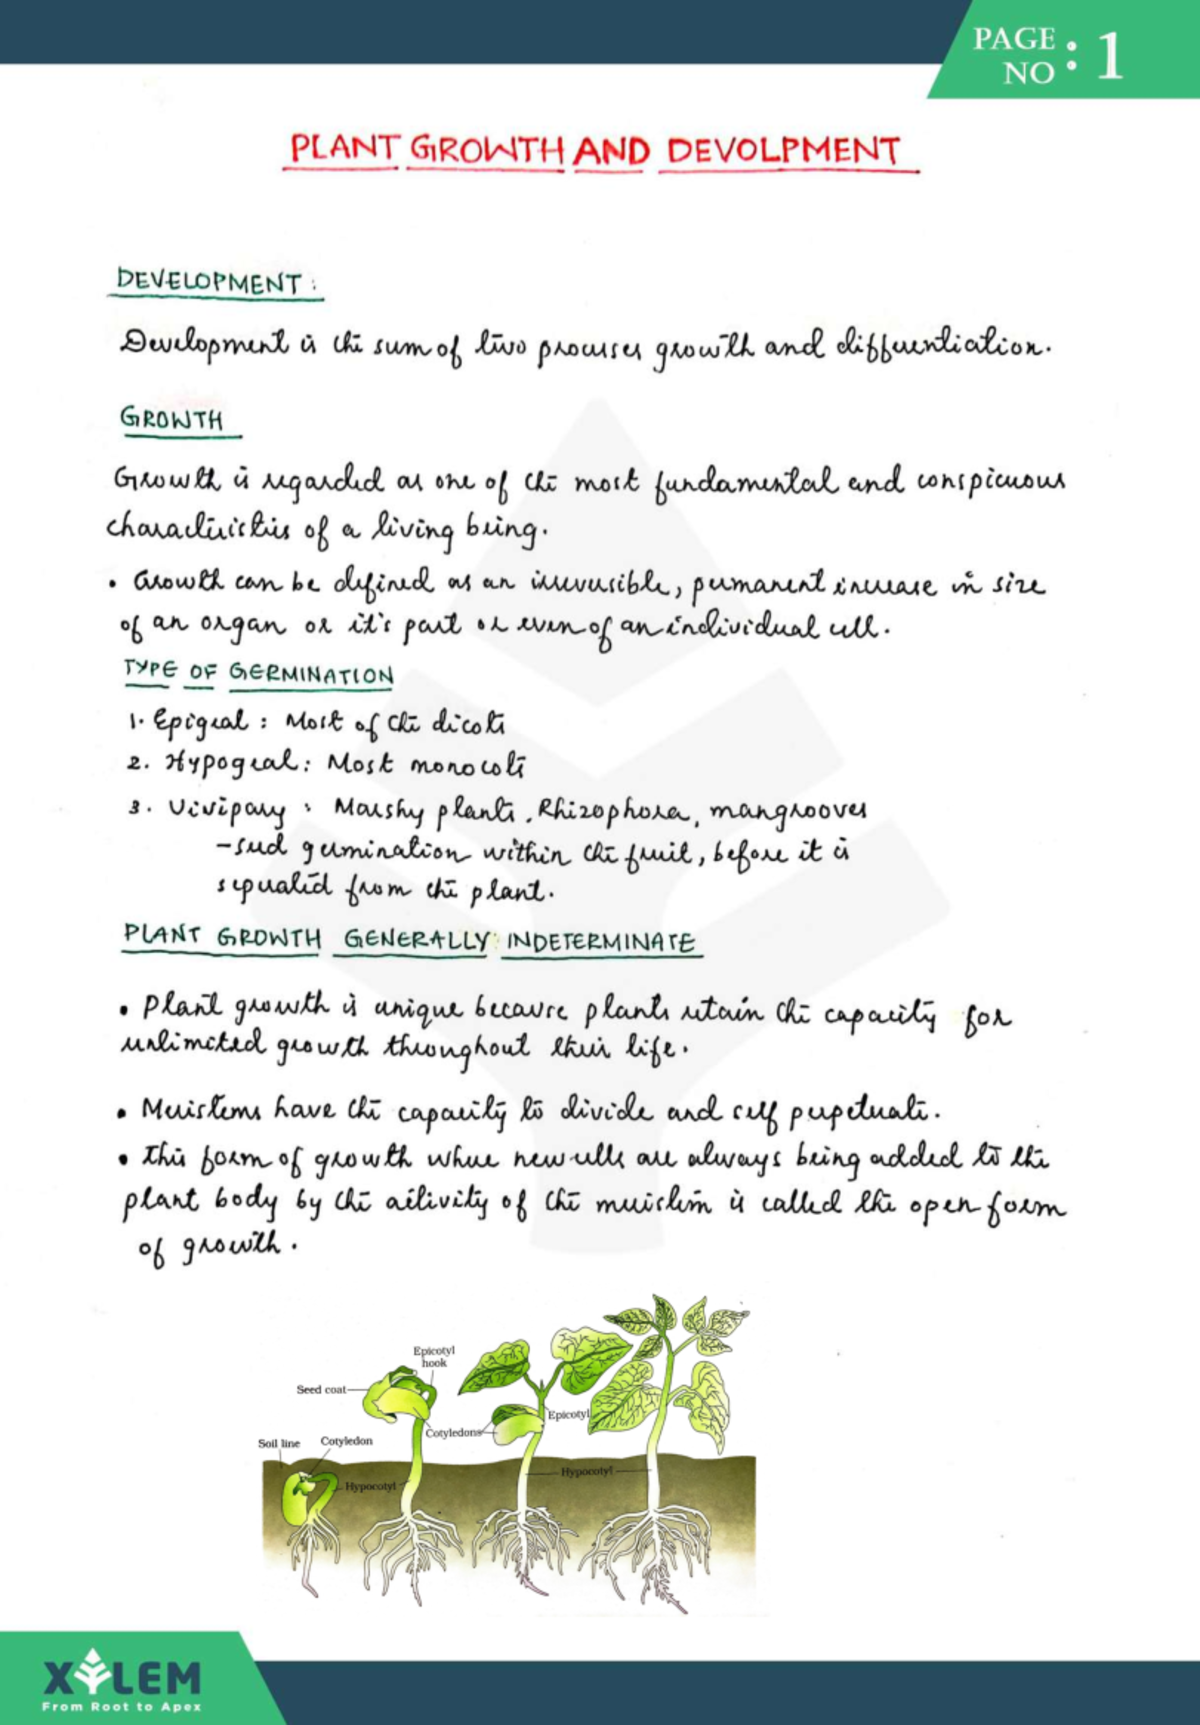 PAGE NO : 1
PLANT GROWTH AND DEVOLPMENT
DEVELOPMENT :
Development is the sum of two processes growth and differentiation.
GROWTH
Growth is regarded as one of the most fundamental and conspicuous
characteristics of a living being.
• Growth can be defined as an irreversible, permanent increase in size
of an organ or it's part or even of an individual cell.
TYPE OF GERMINATION
1. Epigeal : Most of the dicots
2. Hypogeal : Most monocots
3. Vivipary : Marshy plants, Rhizophora, mangrooves
-seed germination within the fruit, before it is
seperated from the plant.
PLANT GROWTH GENERALLY INDETERMINATE
• Plant growth is unique because plants retain the capacity for
unlimited growth throughout their life.
• Meristems have the capacity to divide and self perpetuate.
• This form of growth where new cells are always being added to the
plant body by the activity of the meristem is called the open form
of growth.
Epicotyl
hook
Seed coat
Cotyledons
Epicotyl
Soil line
Cotyledon
Hypocotyl
Hypocotyl
XYLEM
From Root to Apex